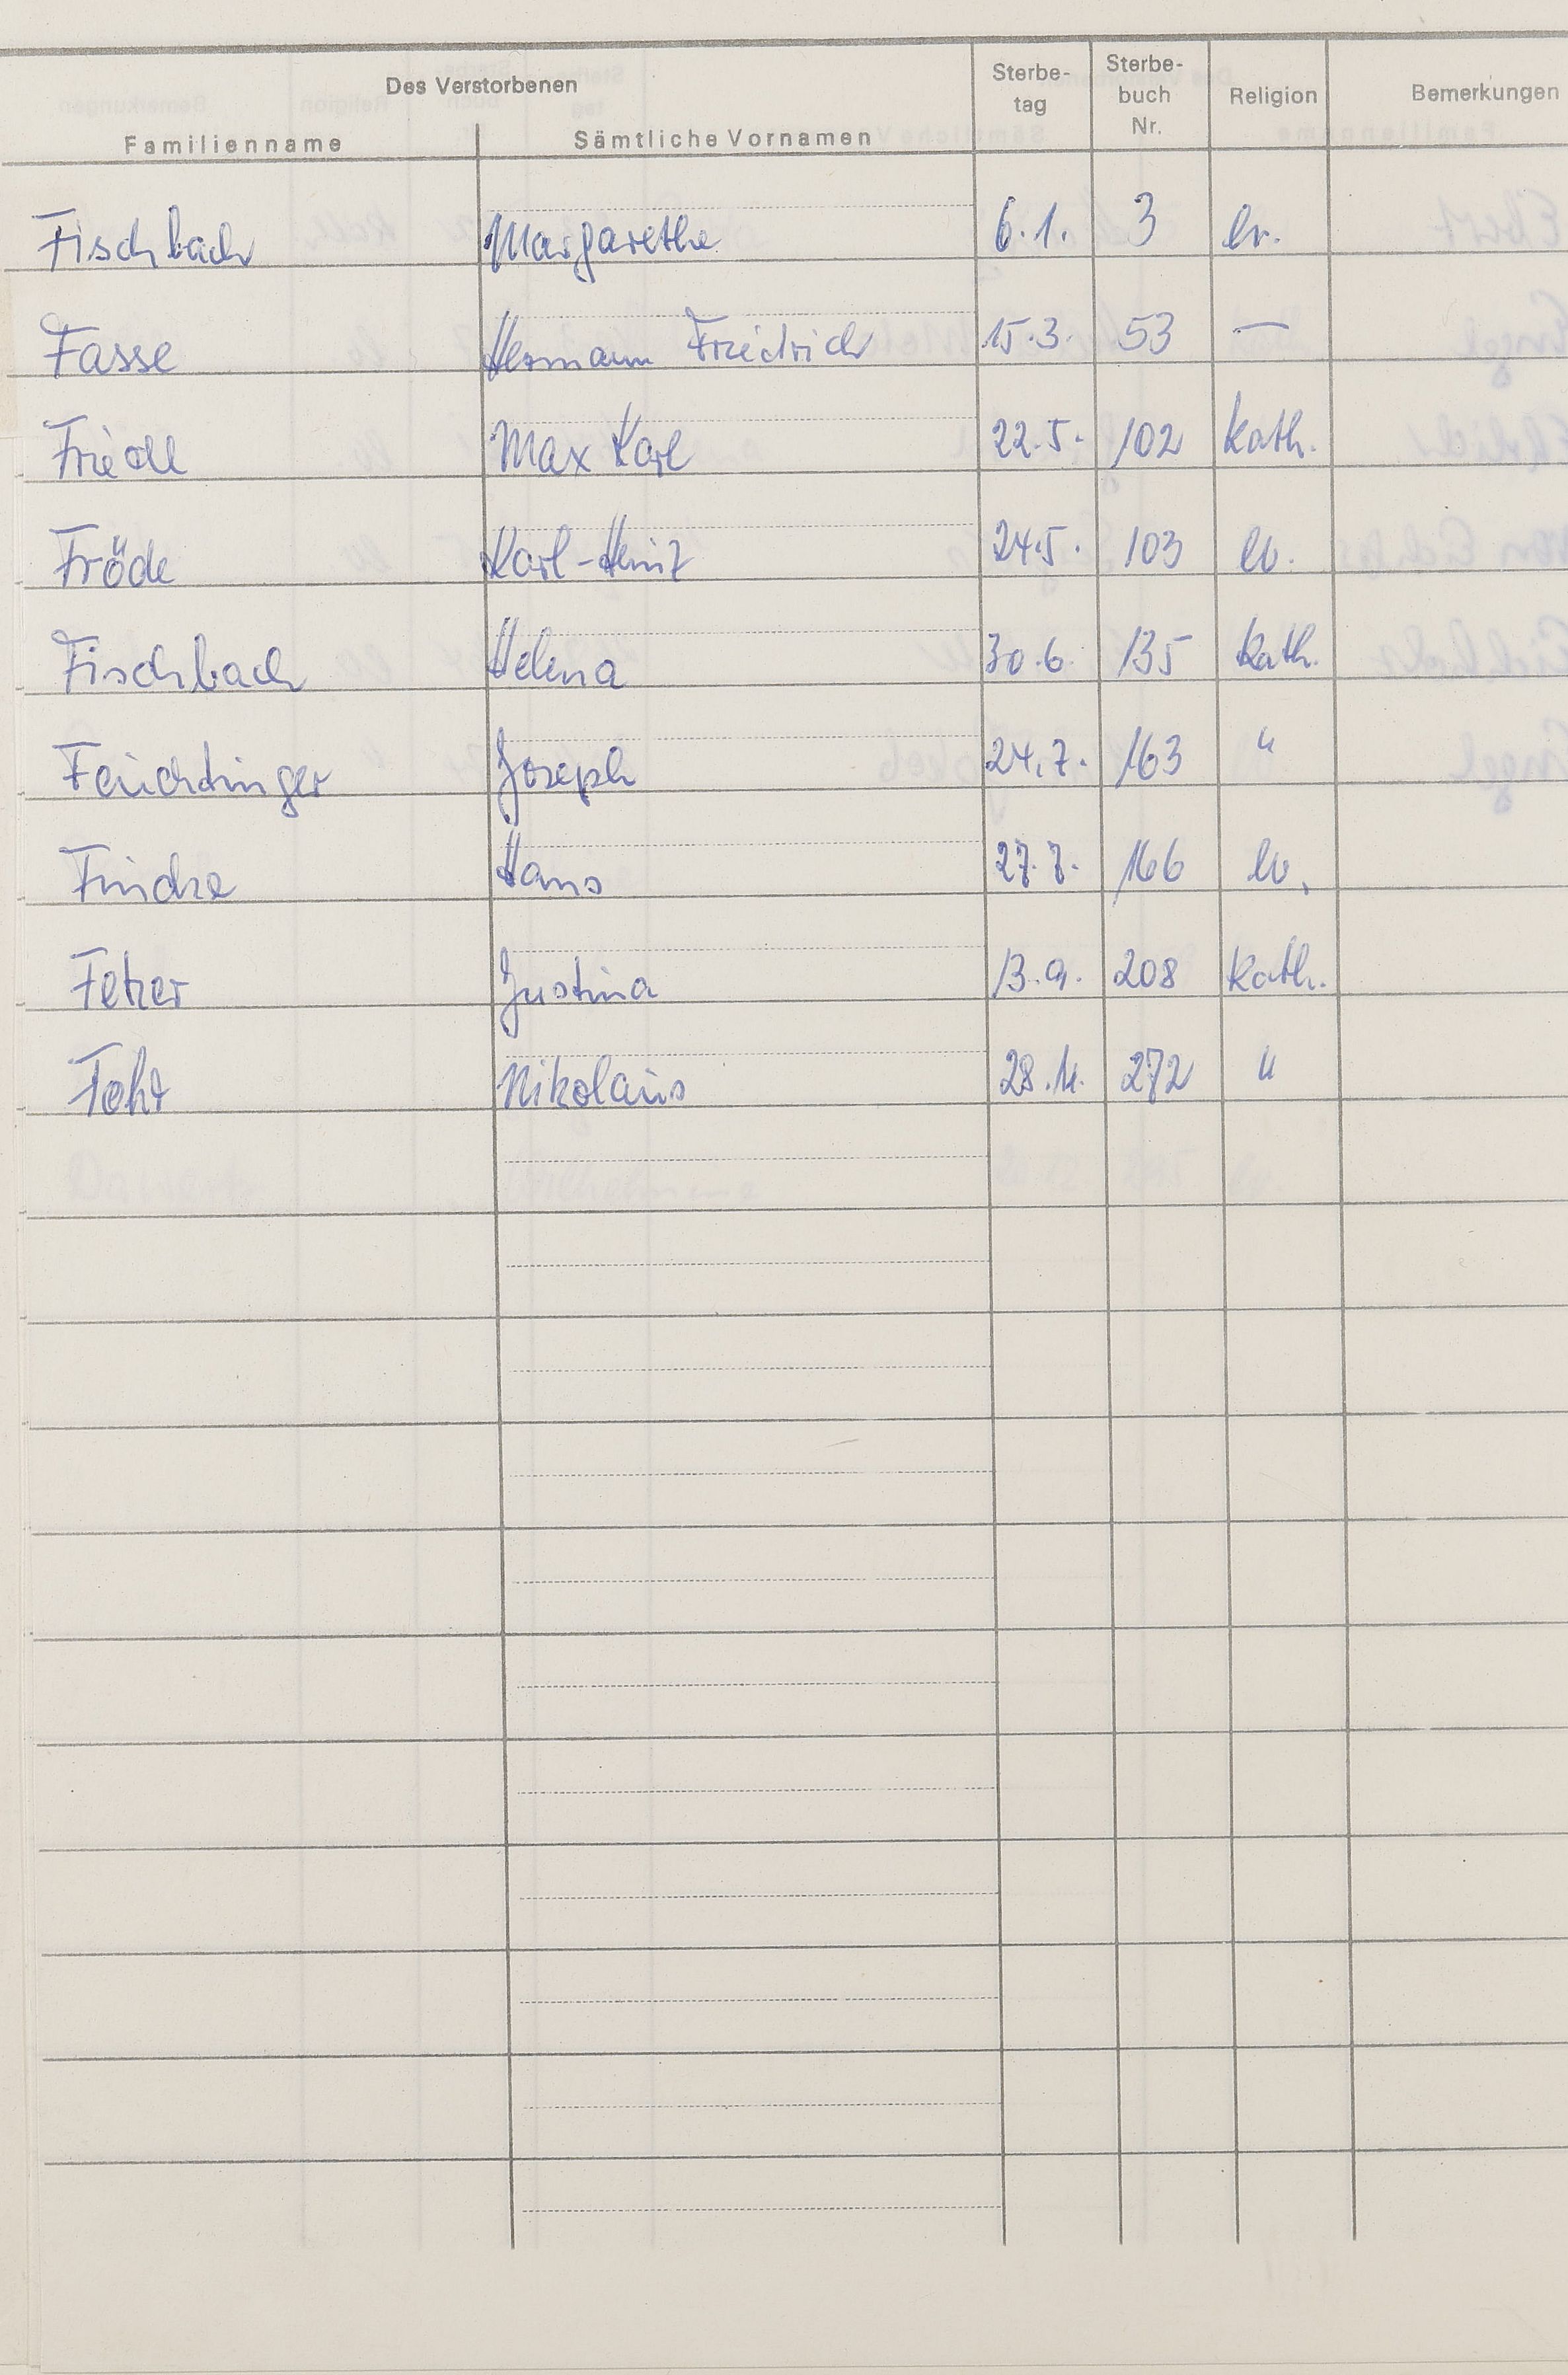 Des Verstorbenen
Familienname Sämtliche Vornamen Sterbe-tag Sterbe-buch Nr. Religion Bemerkungen
Fischbach Margarethe 6.1. 3 ev.
Fasse Hermann Friedrich 15.3. 53 —
Friedl Max Karl 22.5. 102 kath.
Fröde Karl-Heinz 24.5. 103 ev.
Fischbach Helena 30.6. 135 kath.
Feuchtinger Joseph 24.7. 163 "
Fincke Hans 27.7. 166 ev.
Fetzer Justina 13.9. 208 kath.
Fohr Nikolaus 28.11. 272 "